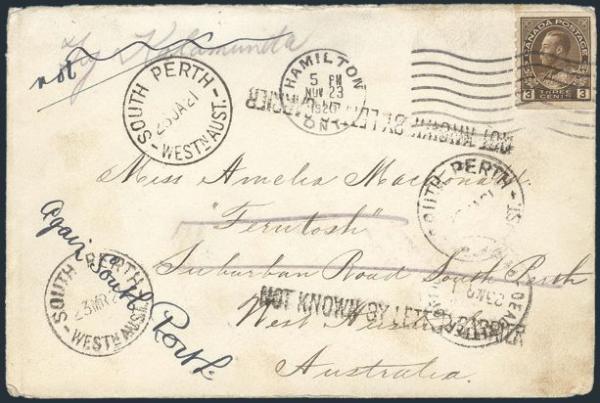 Try Kalamunda
not
SOUTH PERTH
28 JA 21
WESTN AUST.
HAMILTON
5 PM
NOV 23
1920
ONT
CANADA POSTAGE
3 THREE CENTS 3
NOT KNOWN BY LETTER CARRIER
Miss Amelia Macdonald
"Ferntosh"
Suburban Road South Perth
West Australia
Australia
SOUTH PERTH
Again South Perth
SOUTH PERTH
23 MR
WESTN AUST.
NOT KNOWN BY LETTER CARRIER
DEAD LETTER